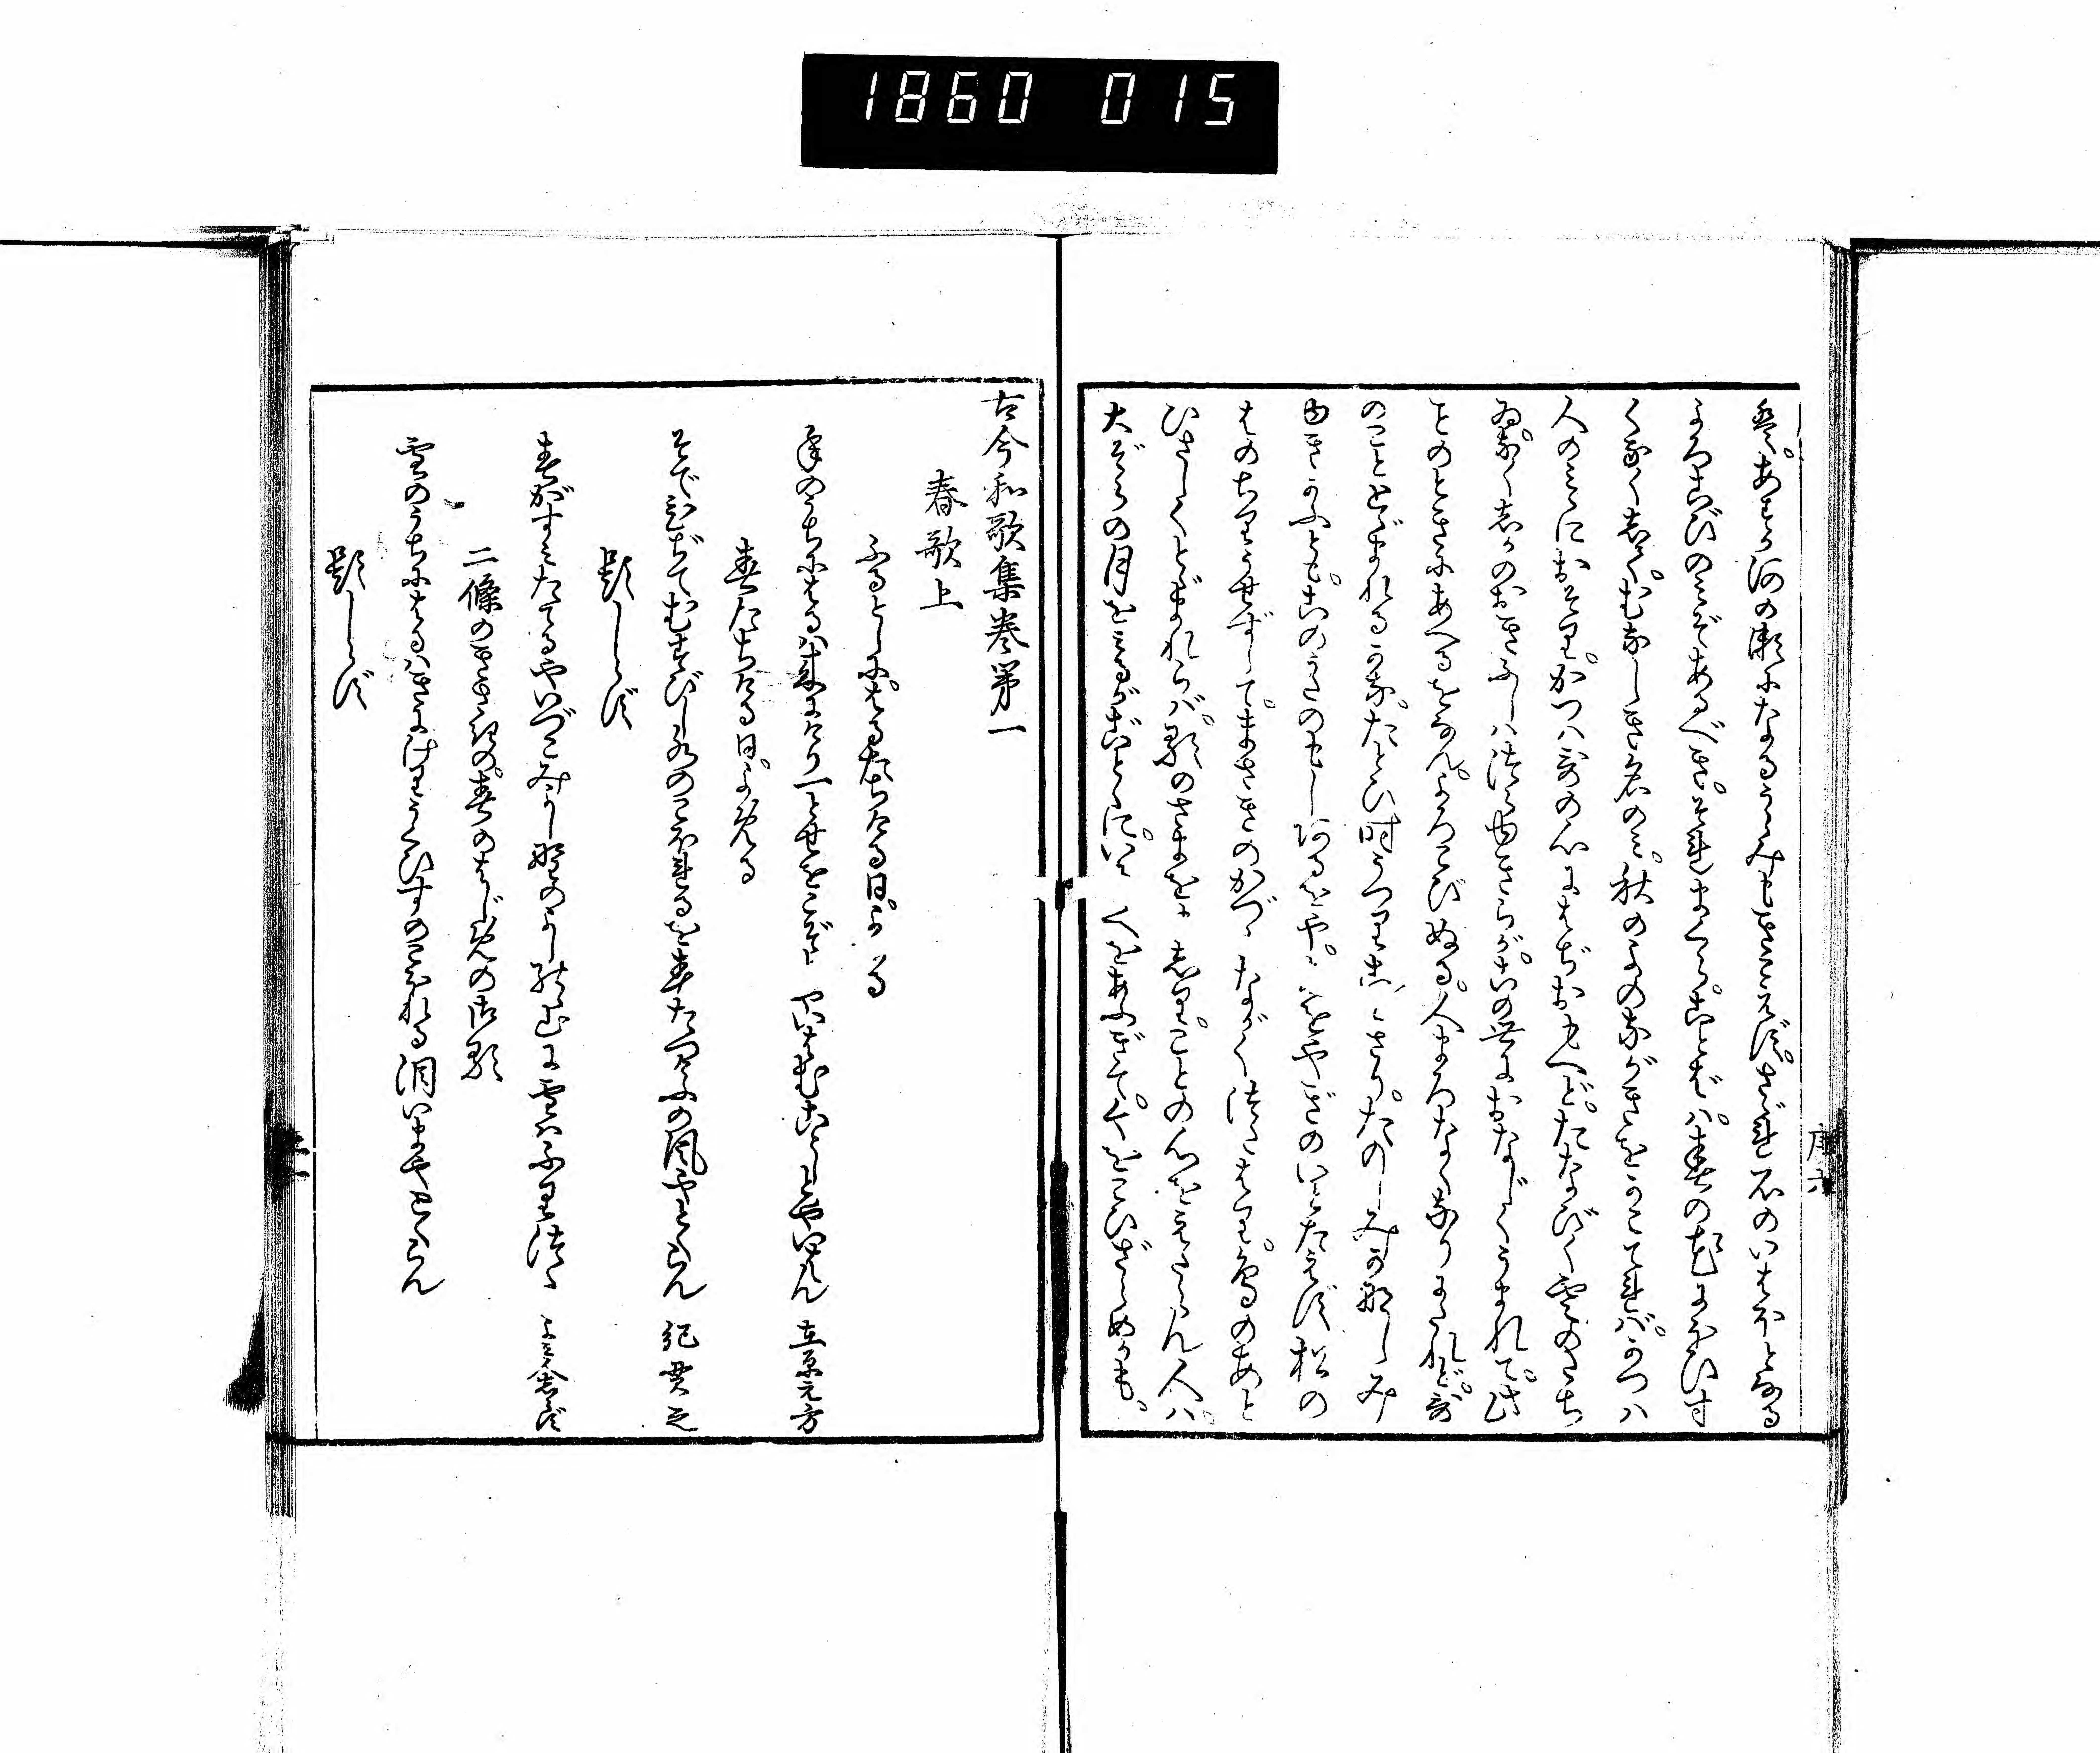 1860 015
ば。あすか河の瀬になるうらみもきこえず。さゞれ石のいはほとなる
よろこびのみぞあるべき。それまくら。ことばハ。春の花にほひす
くなく志て。むなしき名のミ。秋のよの夜がきをかこてれバ。かつハ
人のミゝにおそり。かつハ哥の心にはぢおもへど。たなびく雲のたち
ゐ。なく志かのおきふしハ。つらゆきらが。この世におなじくうまれて。此
ことのときにあへるをなん。よろこびぬる。人まろなくなりにたれど。哥
のことゝゞまれるかな。たとひ時うつり。ことさり。たのしみかなしみ
ゆきかふとも。この哥のもじあるをや。あをやぎのいとたえず。松の
はのちりうせずして。まさきのかづらながくつたはり。鳥のあと
ひさしくとゞまれらバ。哥のさまを志り。ことの心をえたらん人ハ。
大ぞらの月をミるがごとくに。いにしへをあふぎて。今をこひざらめかも。
序六
古今和歌集巻第一
春歌上
ふるとしに。はるたちける日。よめる
年のうちにはるハ来にけり一とせをこぞとやいはむことしとやいはん 在原元方
春たちける日。よめる
そでひぢてむすびし水のこほれるを春たつけふの風やとくらん 紀貫之
題しらず
春がすミたてるやいづこみよし野のよしの山に雪ハふりつゝ よミ人志らず
二條のきさきの。春のはじめの御歌
雪のうちにはるハきにけりうぐひすのこほれる涙いまやとくらん
題しらず